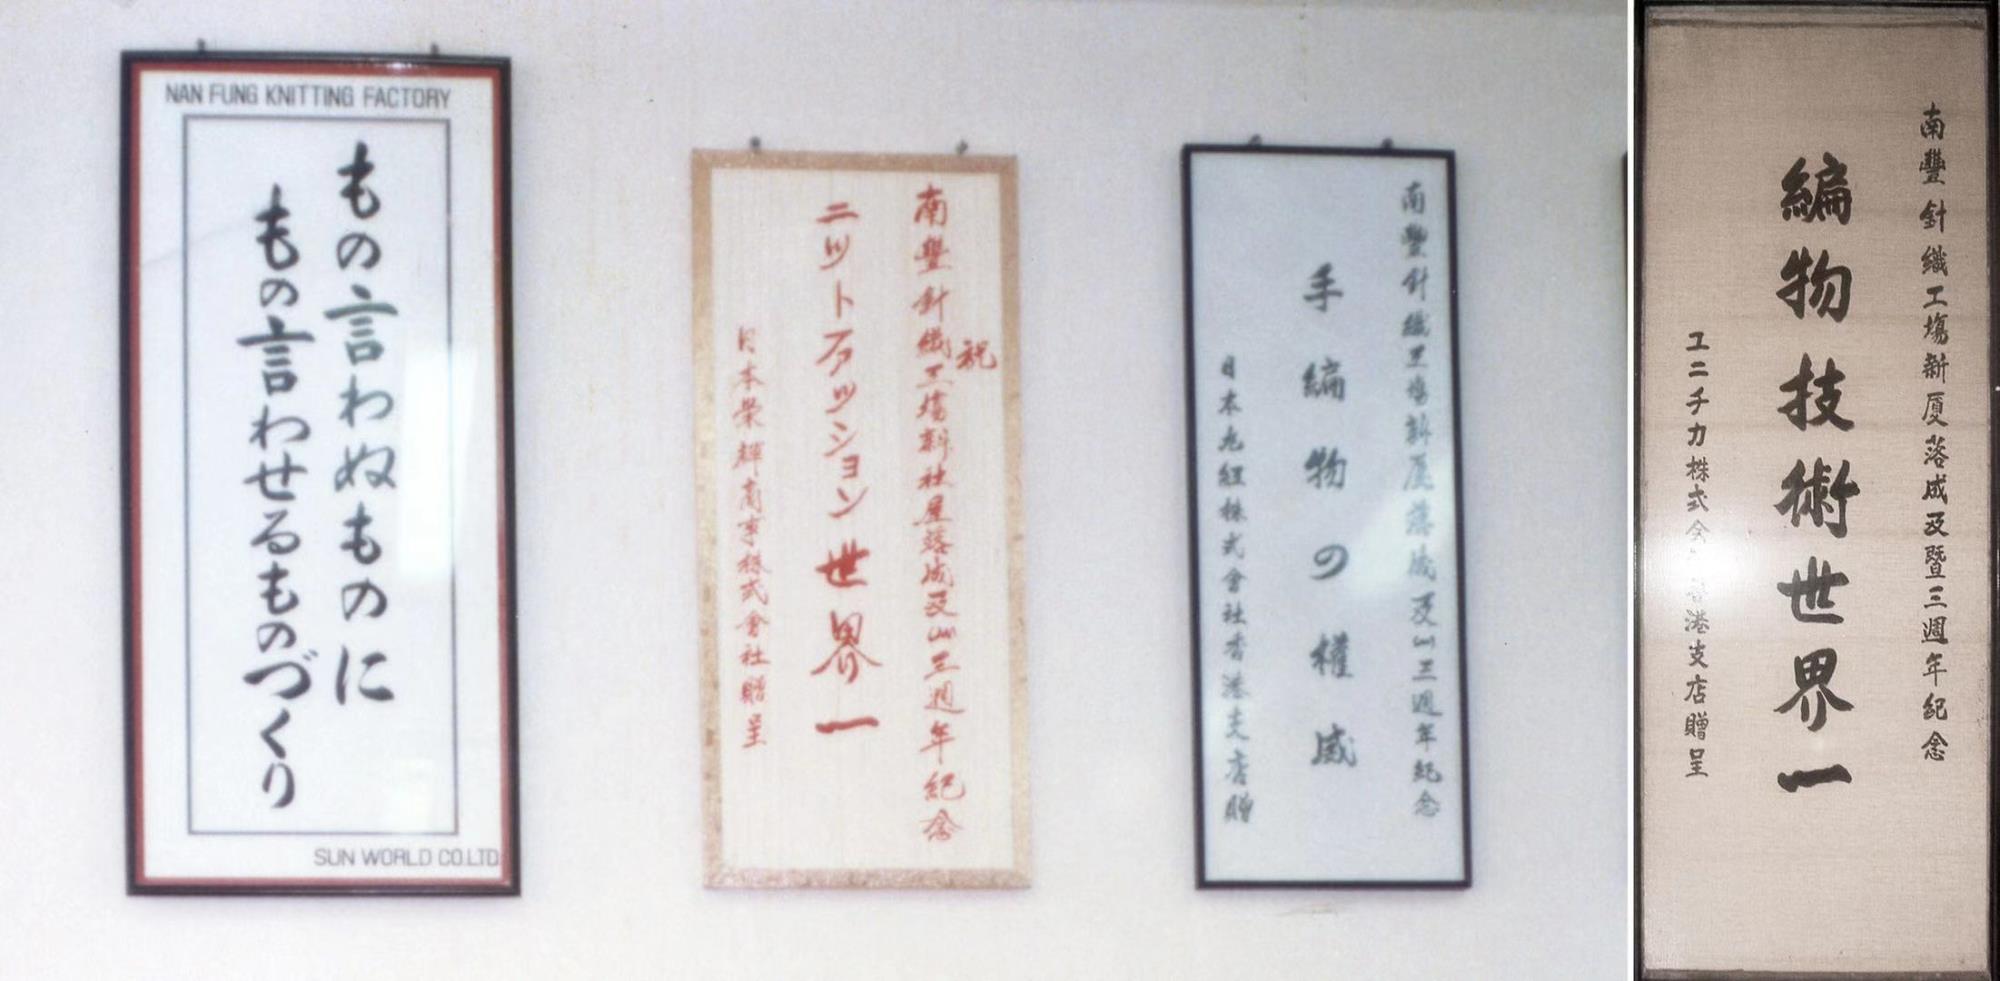 NAN FUNG KNITTING FACTORY
もの言わぬものに
もの言わせるものづくり
SUN WORLD CO.LTD
祝
南豐針織工塲新社屋落成及び三週年紀念
ニットファッション世界一
日本榮輝商事株式會社贈呈
南豐針織工塲新厦落成及び三週年紀念
手編物の權威
日本丸紅株式會社香港支店贈
南豐針織工塲新厦落成及暨三週年紀念
編物技術世界一
ユニチカ株式会 香港支店贈呈